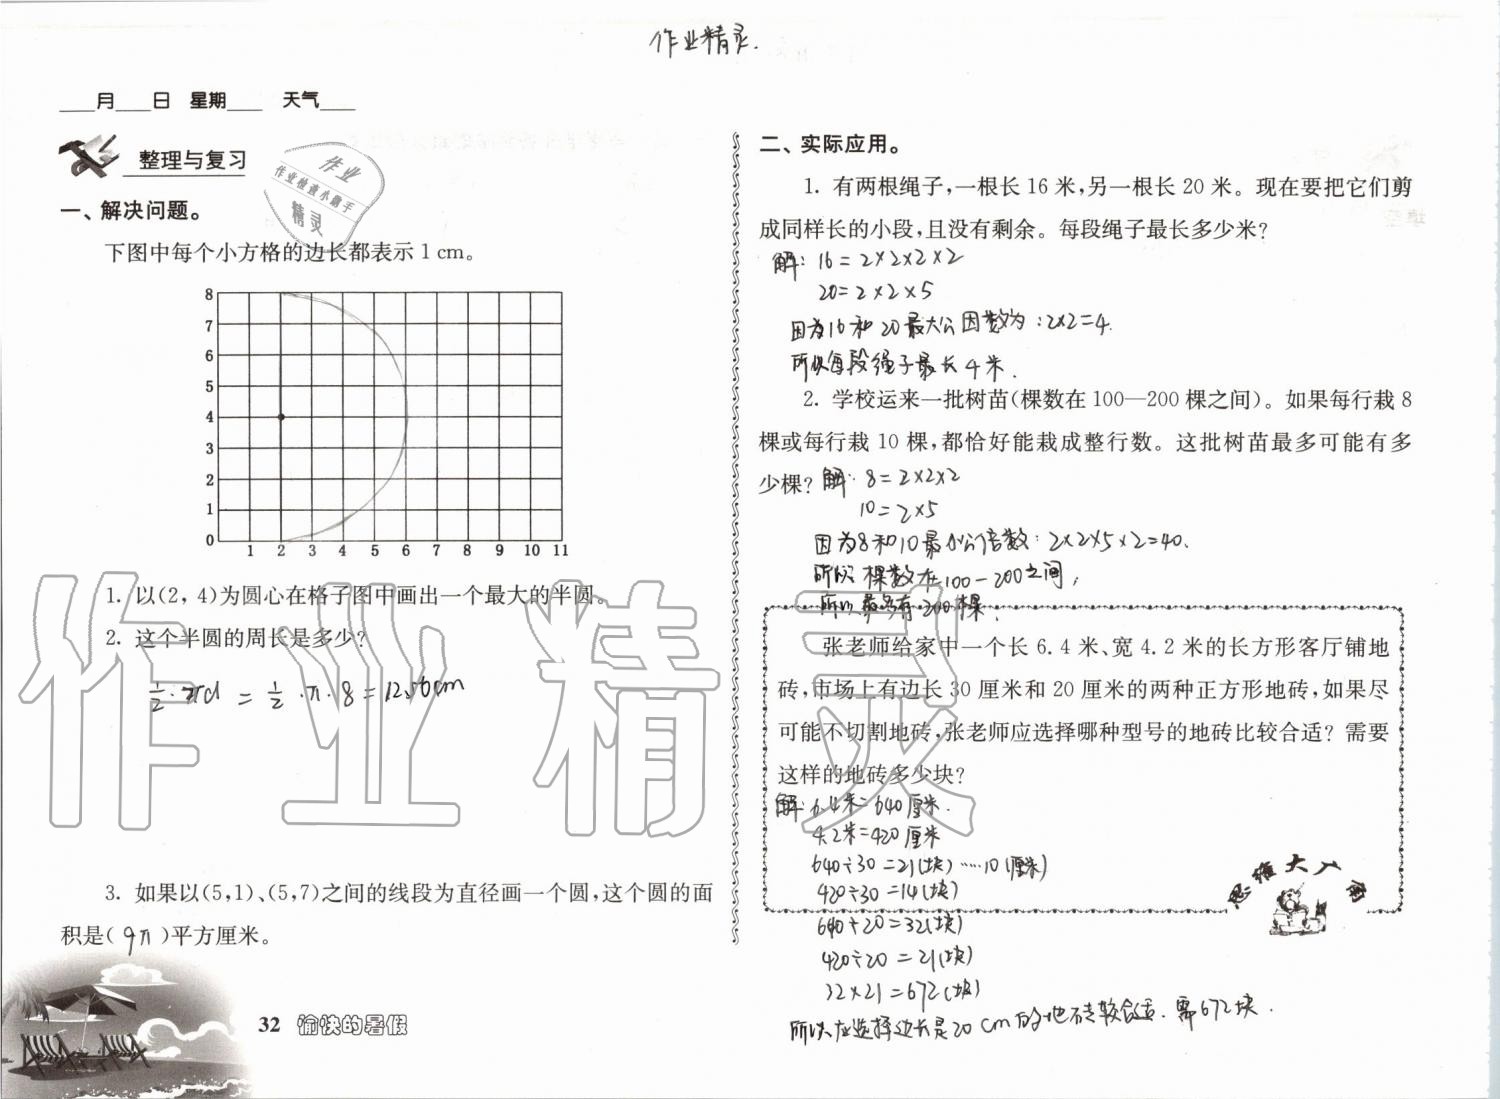 作业精灵.
____月____日 星期____ 天气____
整理与复习
作业
作业检查小助手
精灵
一、解决问题。
下图中每个小方格的边长都表示 1 cm。
8
7
6
5
4
3
2
1
0
1 2 3 4 5 6 7 8 9 10 11
1. 以(2, 4)为圆心在格子图中画出一个最大的半圆。
2. 这个半圆的周长是多少?
1/2·πd = 1/2·π·8 = 12.56cm
3. 如果以(5,1)、(5,7)之间的线段为直径画一个圆,这个圆的面
积是( 9π )平方厘米。
32 愉快的暑假
二、实际应用。
1. 有两根绳子,一根长 16 米,另一根长 20 米。现在要把它们剪
成同样长的小段,且没有剩余。每段绳子最长多少米?
解: 16 = 2×2×2×2
20 = 2×2×5
因为16和20最大公因数为:2×2=4.
所以每段绳子最长4米.
2. 学校运来一批树苗(棵数在 100—200 棵之间)。如果每行栽 8
棵或每行栽 10 棵,都恰好能栽成整行数。这批树苗最多可能有多
少棵? 解: 8=2×2×2
10=2×5
因为8和10最小公倍数:2×2×5×2=40.
所以棵数在100-200之间,
所以最多有200棵.
张老师给家中一个长 6.4 米、宽 4.2 米的长方形客厅铺地
砖,市场上有边长 30 厘米和 20 厘米的两种正方形地砖,如果尽
可能不切割地砖,张老师应选择哪种型号的地砖比较合适? 需要
这样的地砖多少块?
解: 6.4米=640厘米.
4.2米=420厘米
640÷30=21(块)……10(厘米)
420÷30=14(块)
640÷20=32(块)
420÷20=21(块)
32×21=672(块)
所以应选择边长是20cm的地砖较合适.需672块.
思维大入窗
作业精灵